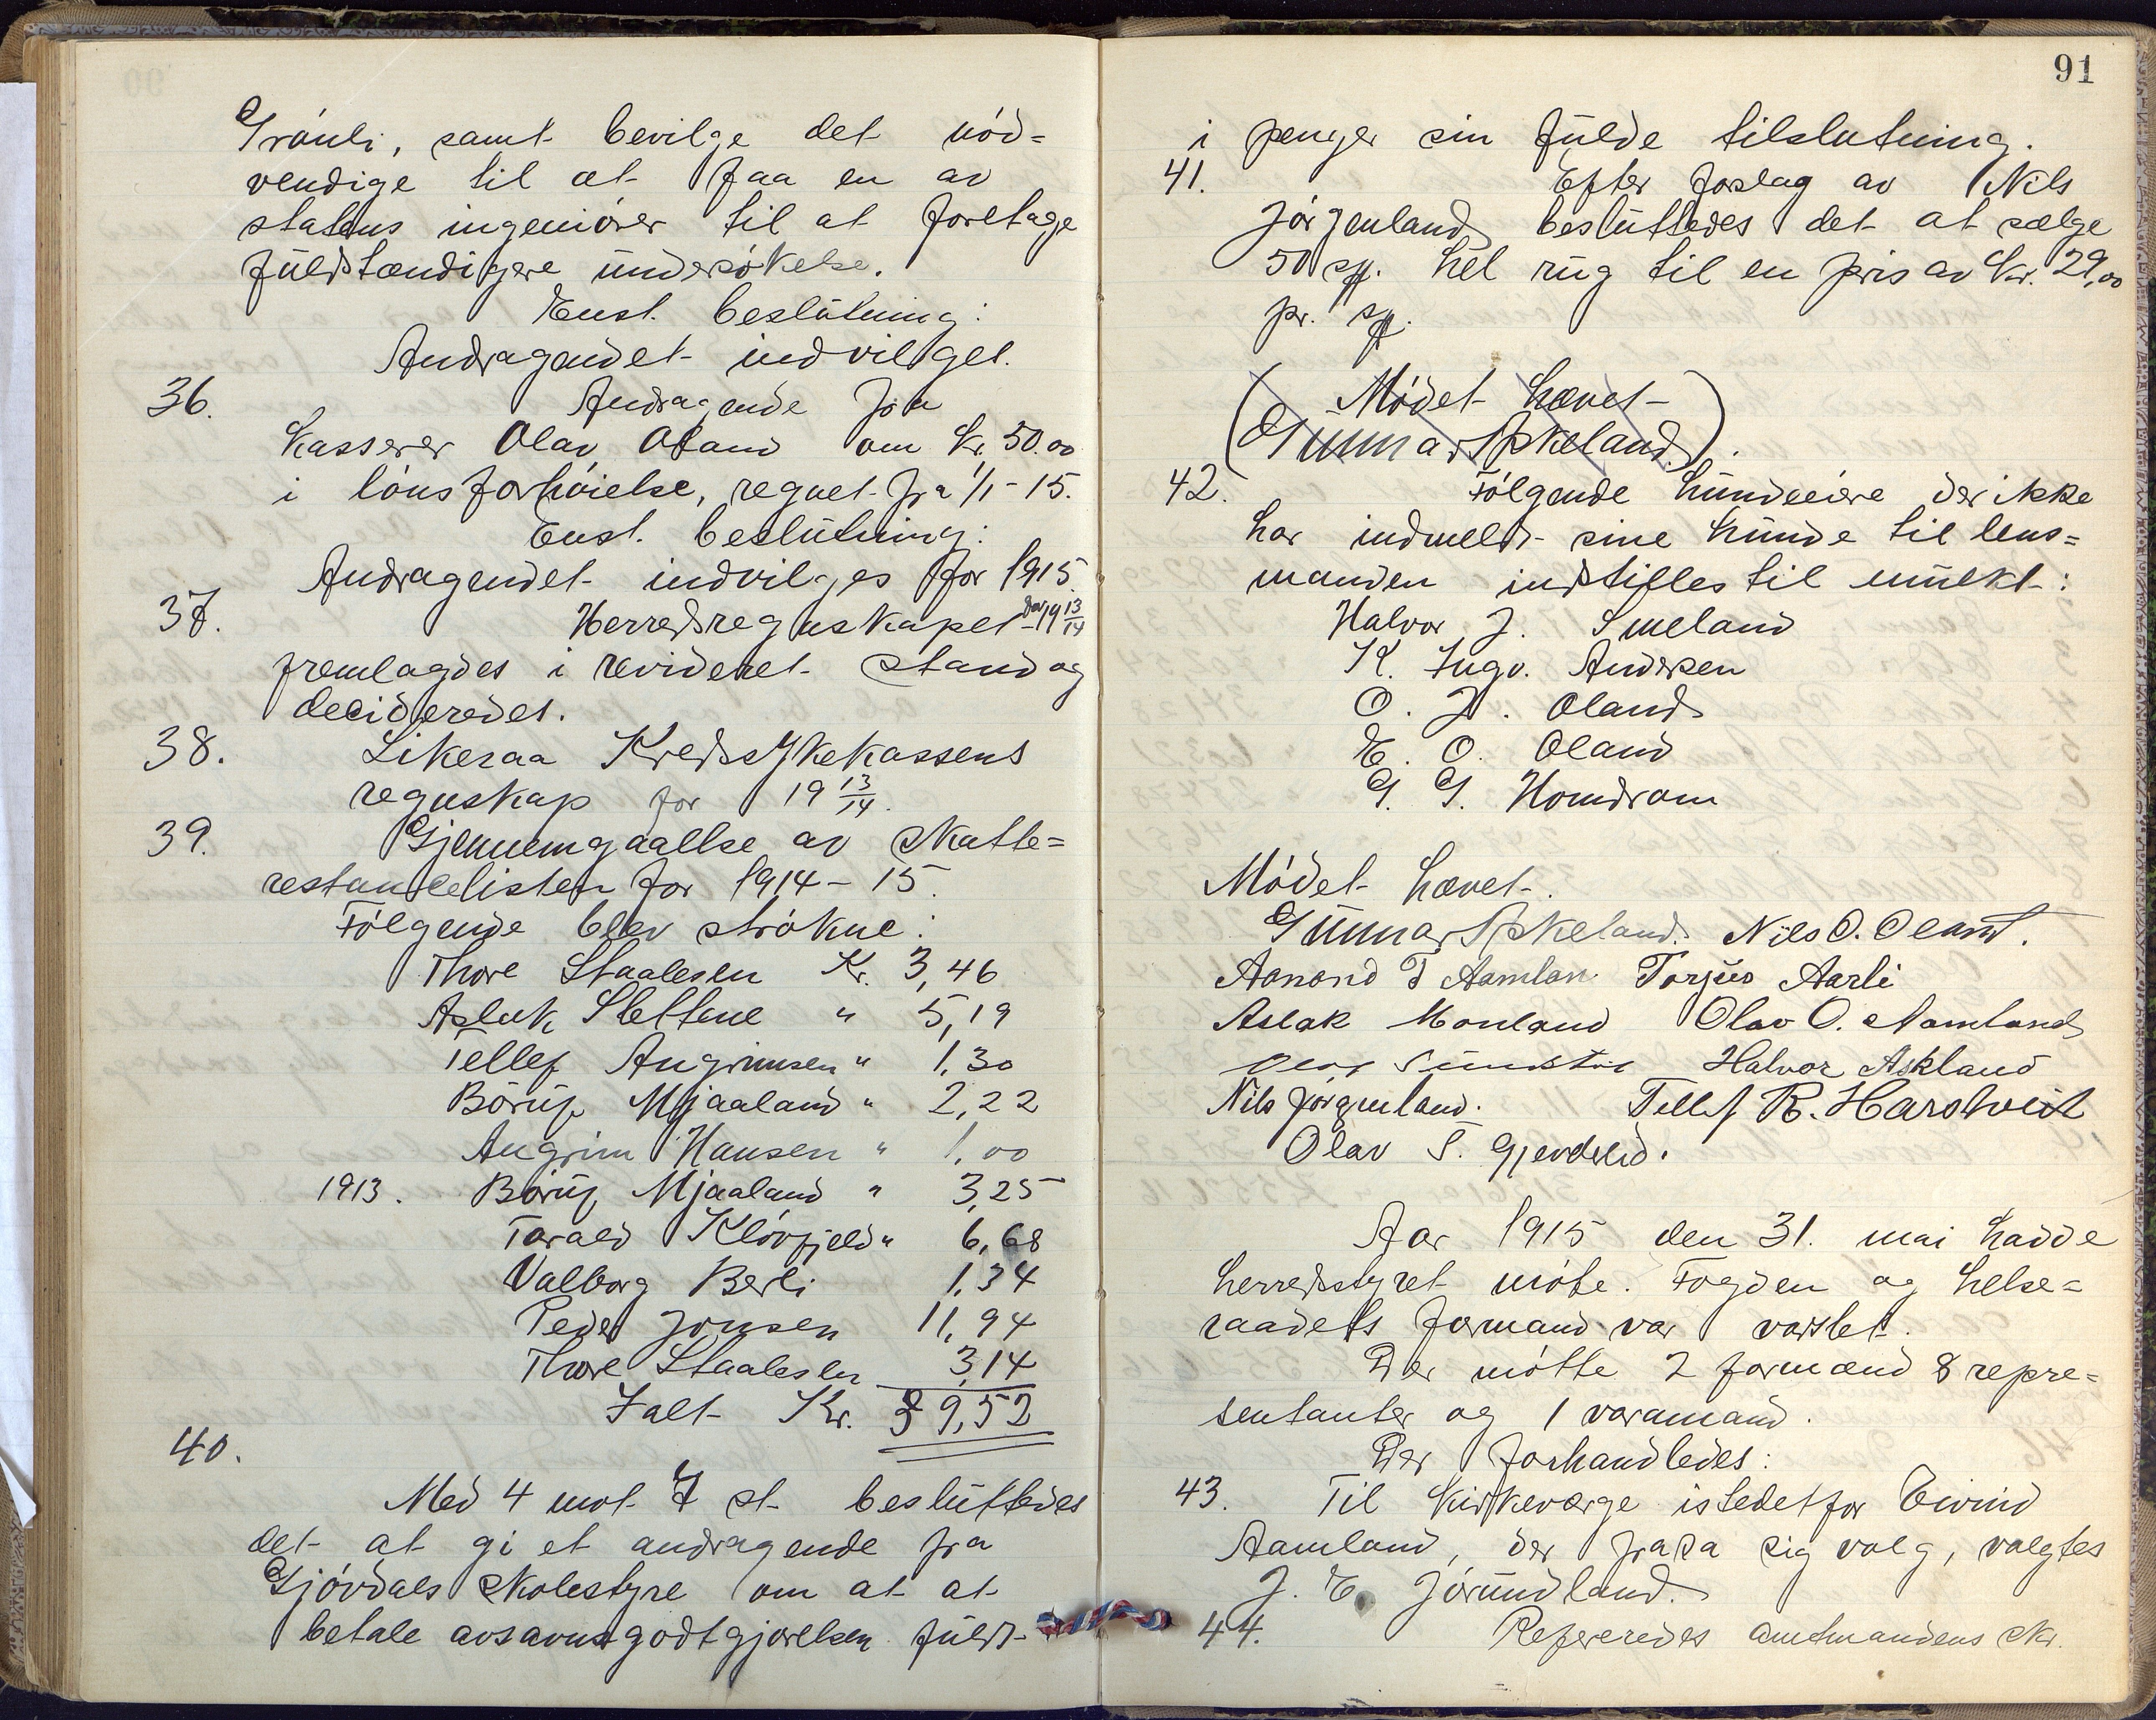 Grønli, samt bevilge det nød=
vendige til at faa en av
statens ingeniører til at foretage
fuldstændigere undersøkelse.
Enst. beslutning:
Andragendet indvilget.
36. Andragende fra
kasserer Olav Oland om kr. 50.00
i lønsforhøielse, regnet fra 1/1-15.
Enst. beslutning:
Andragendet indvilges for 1915.
37. Herredsregnskapet for 19 13/14
fremlagdes i revideret stand og
decideredes.
38. Likesaa Kredssykekassens
regnskap for 19 13/14.
39. Gjennemgaaelse av skatte=
restancelisten for 1914-15.
Følgende blev strøkne:
Thore Staalesen Kr. 3,46
Aslak Slettene " 5,19
Tellef Angrimsen " 1,30
Børuf Mjaaland " 2,22
Angrim Hansen " 1,00
1913. Børuf Mjaaland " 3,25
Tarald Kløvfjeld " 6,68
Valborg Berli 1,34
Peder Jonsen 11,94
Thore Staalesen 3,14
Ialt Kr. 39,52
40.
Med 4 mot 7 st. besluttedes
det at gi et andragende fra
Gjøvdals skolestyre om at at
betale avsavnsgodtgjørelsen fuldt
91
i penger sin fulde tilslutning.
41. Efter forslag av Nils
Jørgenland besluttedes det at sælge
50 sp. hel rug til en pris av kr. 29,00
pr. sp.
(Mødet hævet
Gunnar Askeland).
42. Følgende hundeeiere der ikke
har indmeldt sine hunde til lens=
manden indstilles til mulkt:
Halvor J. Smeland
K. Ingv. Andersen
O. J. Oland
E. O. Oland
G. G. Homdrom
Mødet hævet.
Gunnar Askeland. Nils O. Oland.
Aanond T Aamlan Torjus Aarli
Aslak Monland Olav O. Aamland
Halvor Askland
Nils Jørgenland. Tellef R. Harstveit
Olav T. Gjerdslid.
Aar 1915 den 31. mai hadde
herredsstyret møte. Fogden og helse=
raadets formand var varslet.
Der møtte 2 formænd 8 repre=
sentanter og 1 varamand.
Der forhandledes:
43. Til kirkeværge istedetfor Eivind
Aamland, der frasa sig valg, valgtes
J. E. Jørundland.
44. Refereredes amtmandens skr.